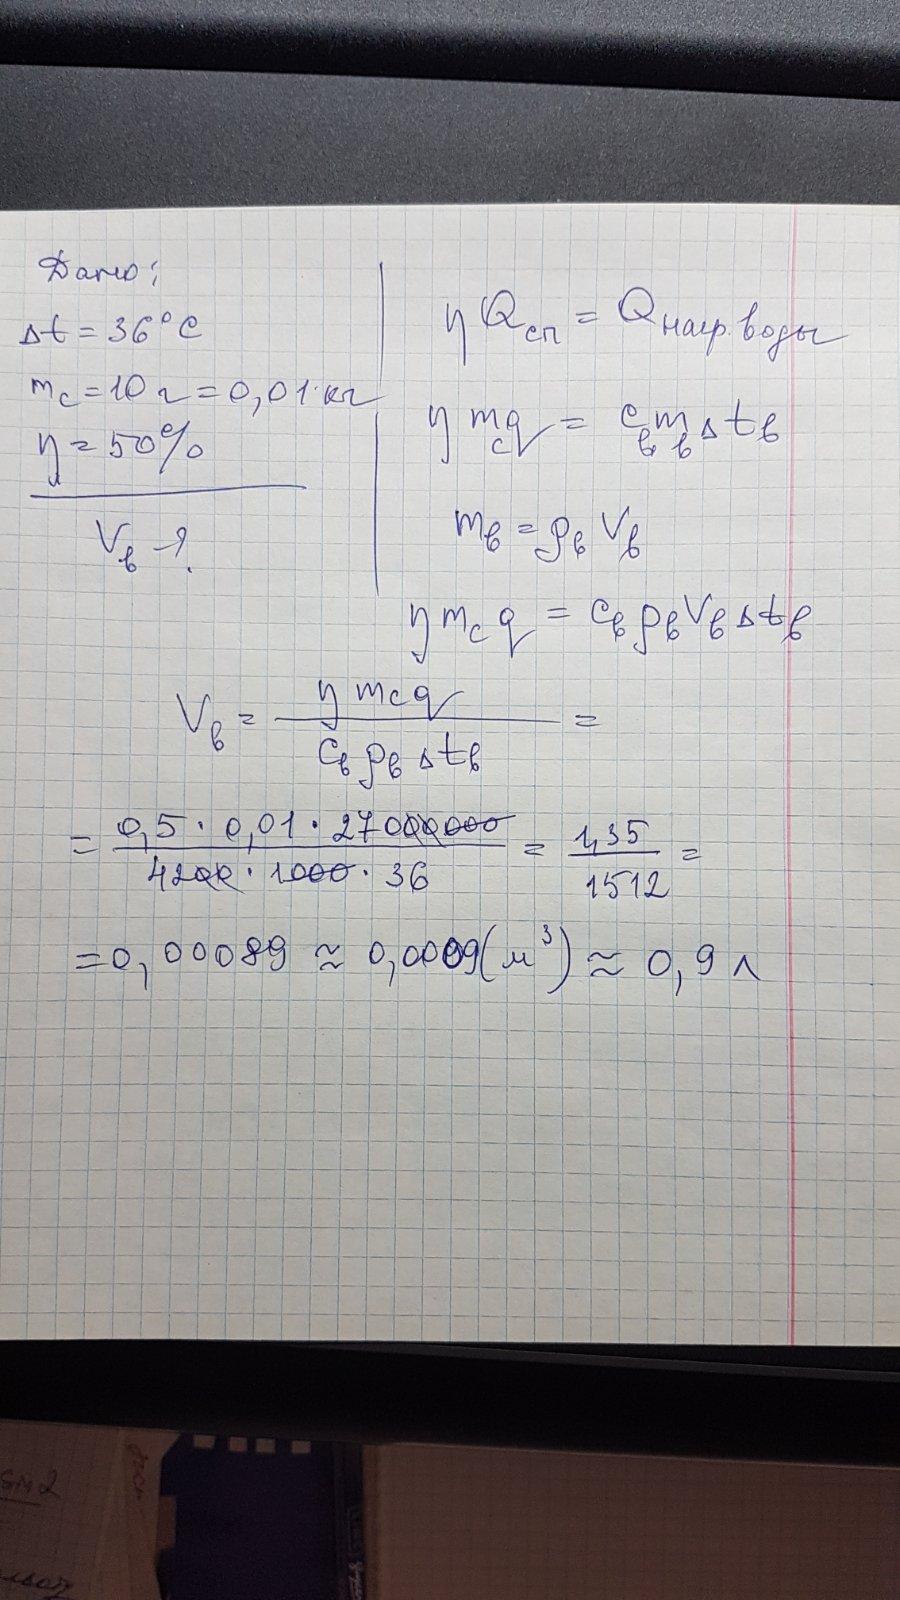 Дано:
Δt = 36°C
mс = 10 г = 0,01 кг
η = 50%
Vв - ?
ηQсп = Qнагр. воды
ηmсq = cвmвΔtв
mв = ρвVв
ηmсq = cвρвVвΔtв
Vв = ηmсq / cвρвΔtв =
= 0,5 · 0,01 · 27000000 / 4200 · 1000 · 36 = 1,35 / 1512 =
= 0,00089 ≈ 0,0009 (м³) ≈ 0,9 л